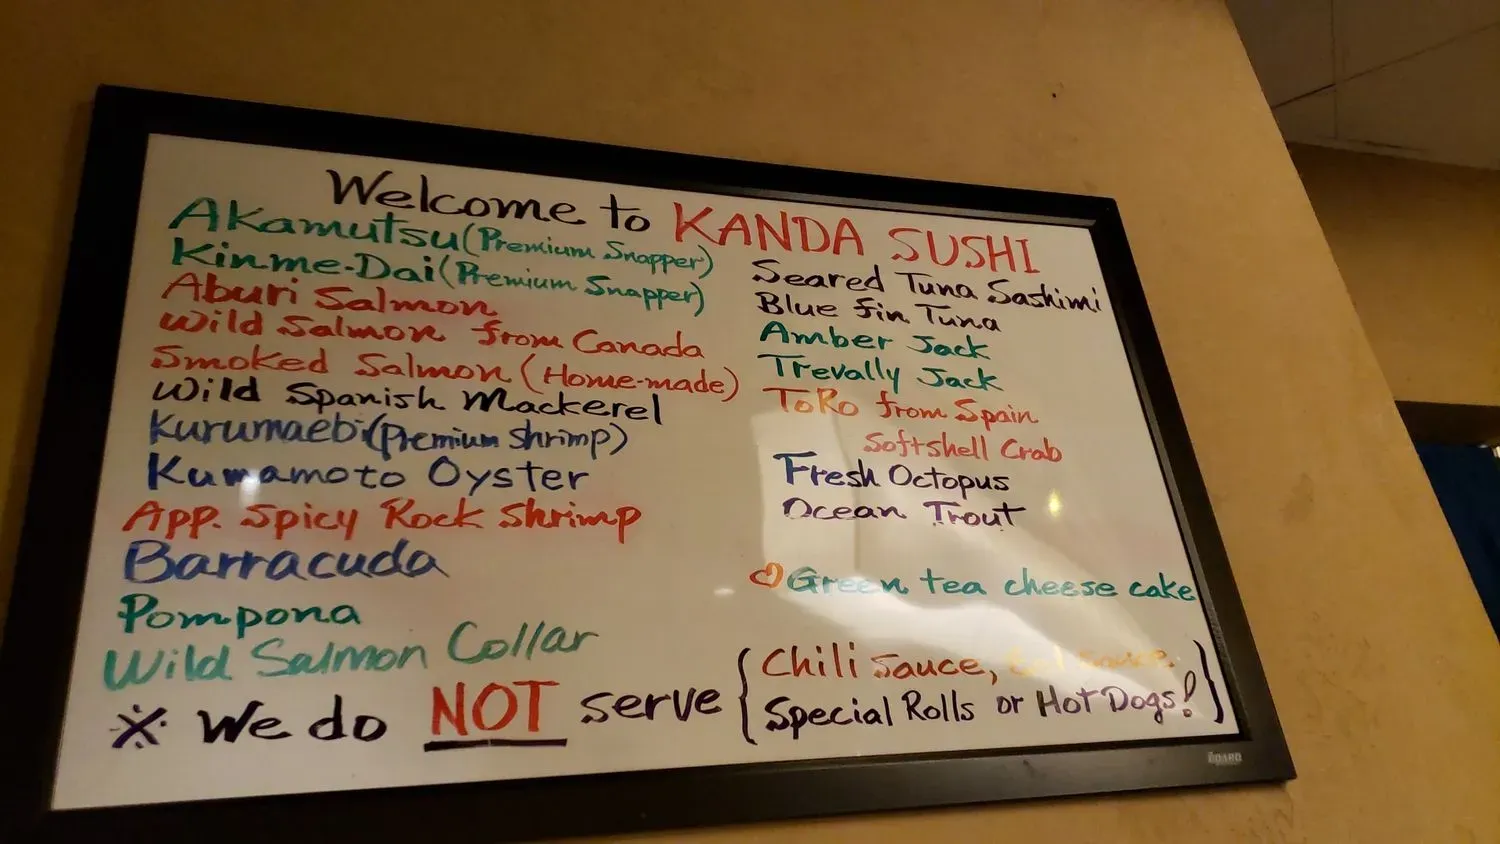 Welcome to KANDA SUSHI
Akamutsu (Premium Snapper)
Kinme-Dai (Premium Snapper)
Aburi Salmon
Wild Salmon from Canada
Smoked Salmon (Home-made)
Wild Spanish Mackerel
Kurumaebi (Premium Shrimp)
Kumamoto Oyster
App. Spicy Rock Shrimp
Barracuda
Pompona
Wild Salmon Collar
Seared Tuna Sashimi
Blue fin Tuna
Amber Jack
Trevally Jack
ToRo from Spain
Softshell Crab
Fresh Octopus
Ocean Trout
♡Green tea cheese cake
※ We do NOT serve { Chili Sauce, Eel Sauce,
Special Rolls or Hot Dogs! }